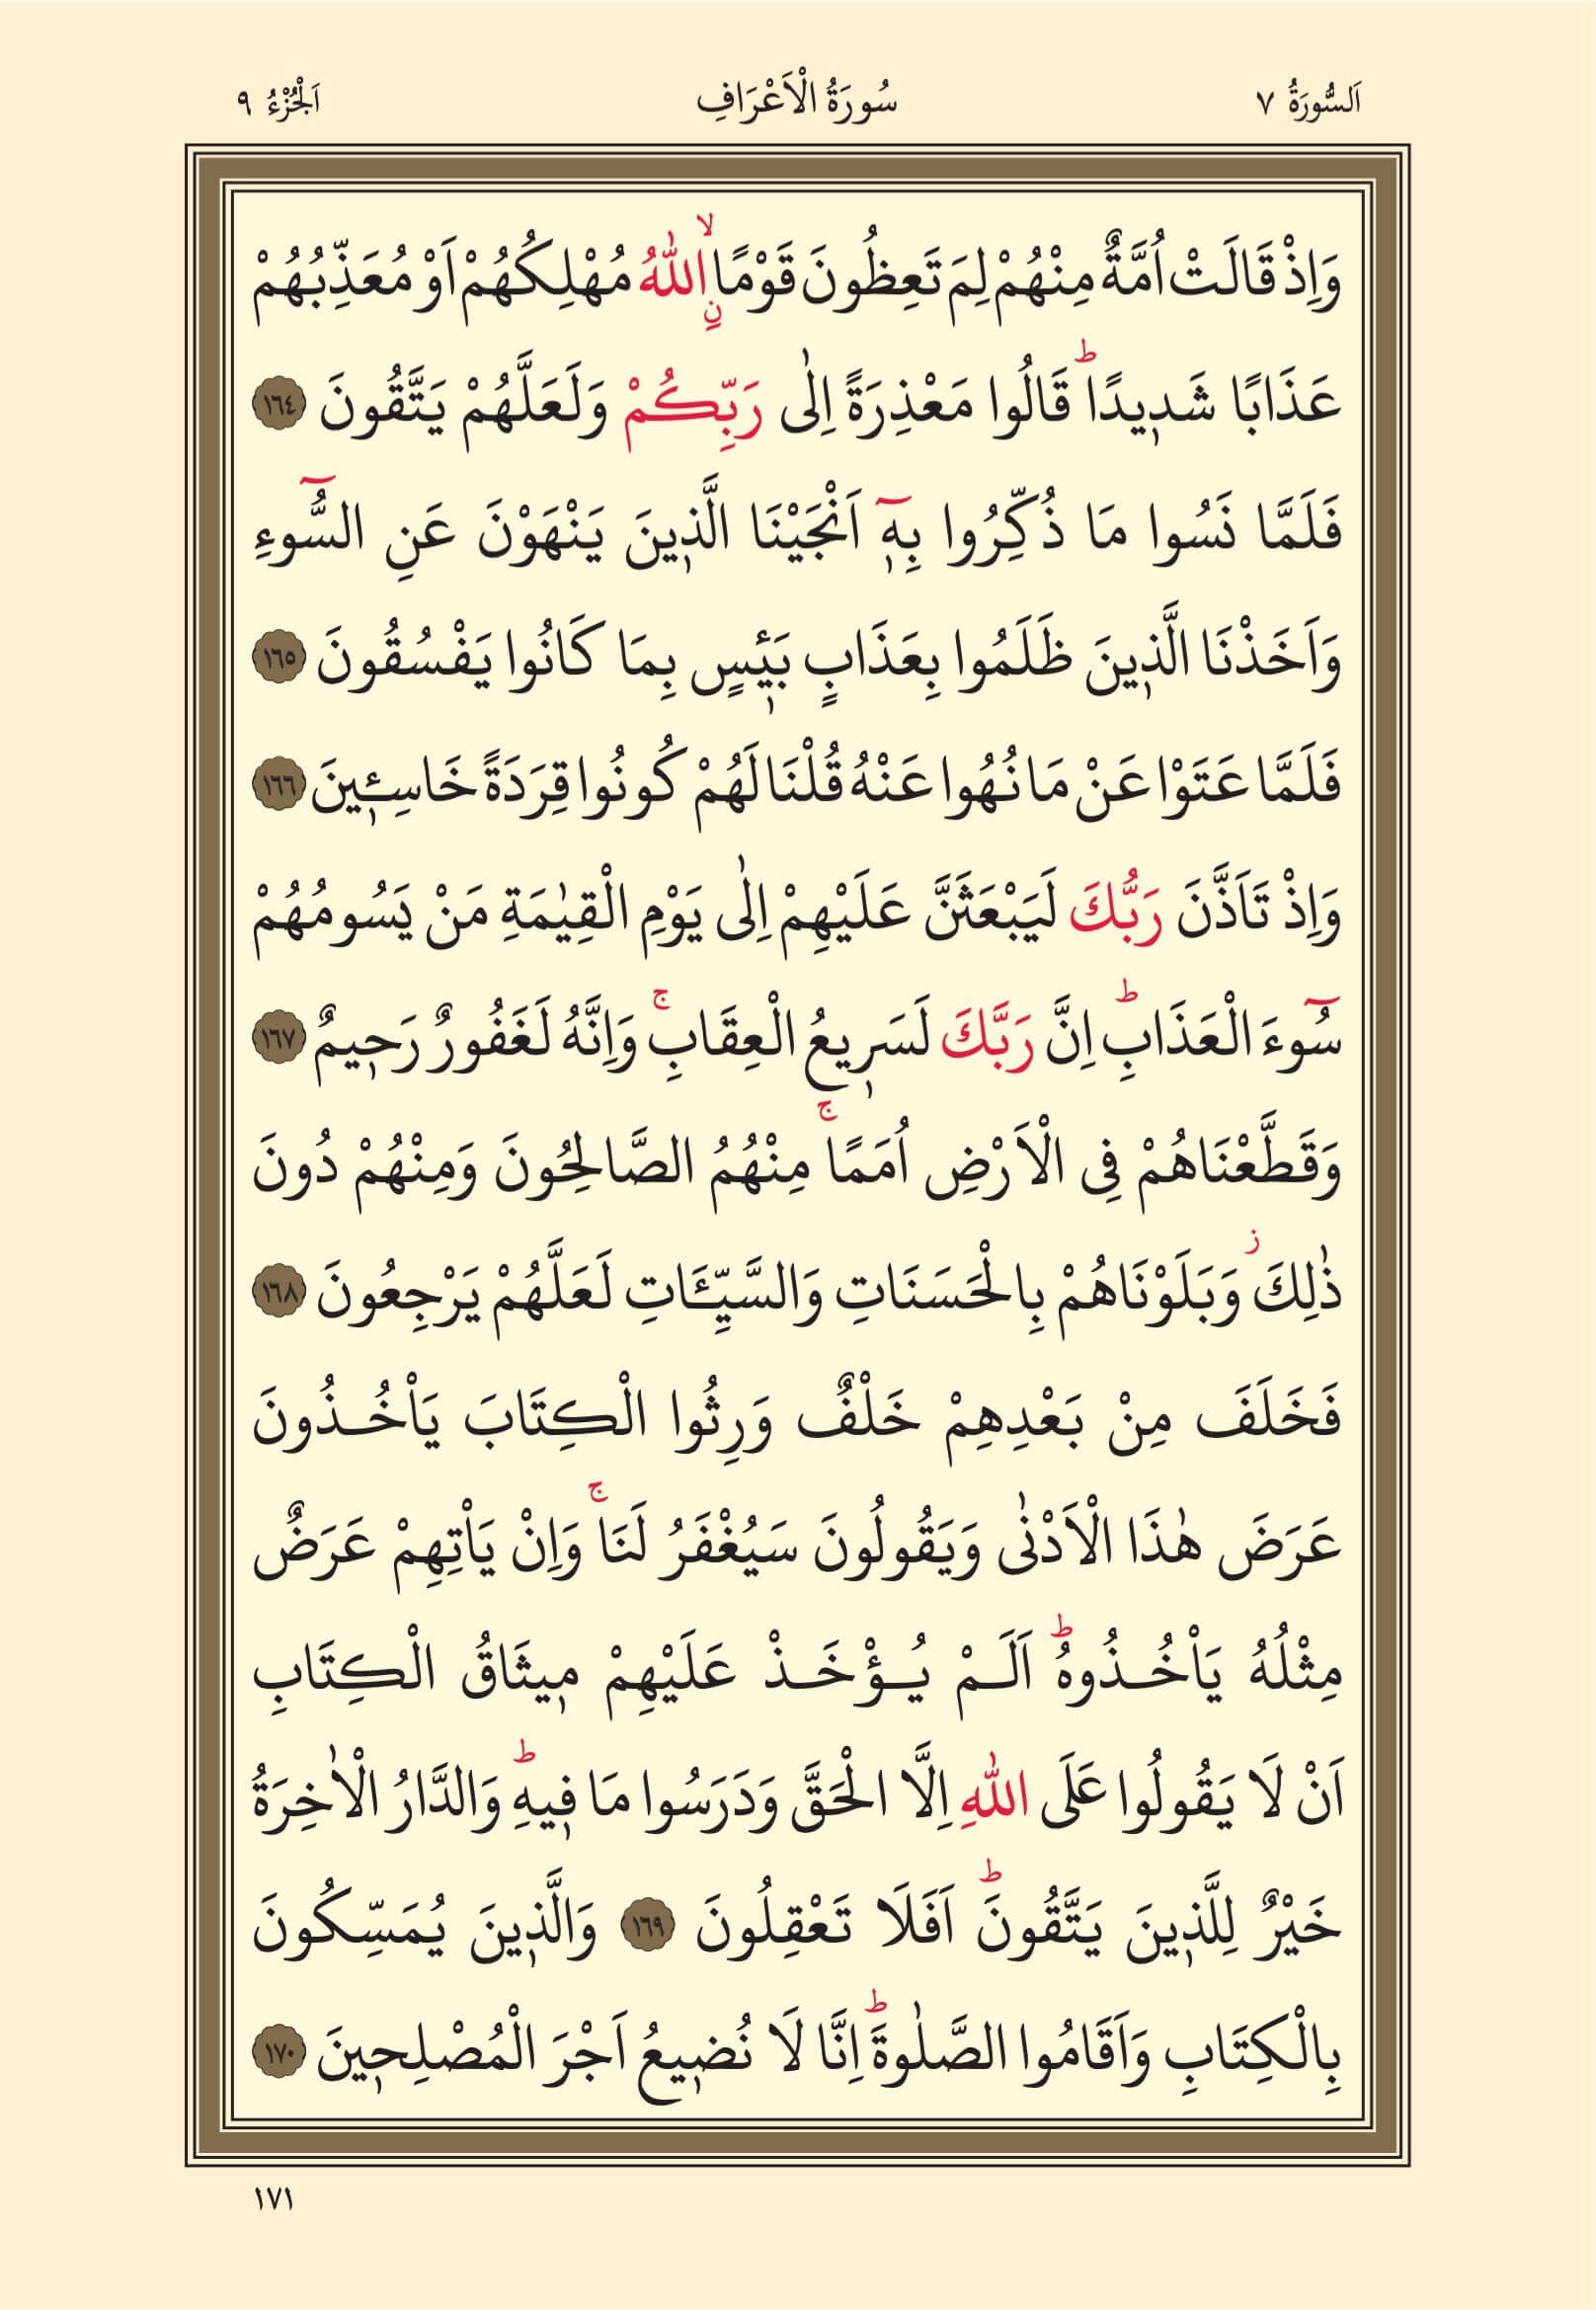 اَلسُّورَةُ ٧ سُورَةُ الْاَعْرَافِ اَلْجُزْءُ ٩
وَاِذْ قَالَتْ اُمَّةٌ مِنْهُمْ لِمَ تَعِظُونَ قَوْمًاۙۨ اللّٰهُ مُهْلِكُهُمْ اَوْ مُعَذِّبُهُمْ
عَذَابًا شَد۪يدًاۜ قَالُوا مَعْذِرَةً اِلٰى رَبِّكُمْ وَلَعَلَّهُمْ يَتَّقُونَ ١٦٤
فَلَمَّا نَسُوا مَا ذُكِّرُوا بِه۪ٓ اَنْجَيْنَا الَّذ۪ينَ يَنْهَوْنَ عَنِ السُّٓوءِ
وَاَخَذْنَا الَّذ۪ينَ ظَلَمُوا بِعَذَابٍ بَـ۪ٔيسٍ بِمَا كَانُوا يَفْسُقُونَ ١٦٥
فَلَمَّا عَتَوْا عَنْ مَا نُهُوا عَنْهُ قُلْنَا لَهُمْ كُونُوا قِرَدَةً خَاسِـ۪ٔينَ ١٦٦
وَاِذْ تَاَذَّنَ رَبُّكَ لَيَبْعَثَنَّ عَلَيْهِمْ اِلٰى يَوْمِ الْقِيٰمَةِ مَنْ يَسُومُهُمْ
سُٓوءَ الْعَذَابِۜ اِنَّ رَبَّكَ لَسَر۪يعُ الْعِقَابِۚ وَاِنَّهُ لَغَفُورٌ رَح۪يمٌ ١٦٧
وَقَطَّعْنَاهُمْ فِى الْاَرْضِ اُمَمًاۚ مِنْهُمُ الصَّالِحُونَ وَمِنْهُمْ دُونَ
ذٰلِكَۘ وَبَلَوْنَاهُمْ بِالْحَسَنَاتِ وَالسَّيِّـَٔاتِ لَعَلَّهُمْ يَرْجِعُونَ ١٦٨
فَخَلَفَ مِنْ بَعْدِهِمْ خَلْفٌ وَرِثُوا الْكِتَابَ يَاْخُذُونَ
عَرَضَ هٰذَا الْاَدْنٰى وَيَقُولُونَ سَيُغْفَرُ لَنَاۚ وَاِنْ يَاْتِهِمْ عَرَضٌ
مِثْلُهُ يَاْخُذُوهُۜ اَلَمْ يُؤْخَذْ عَلَيْهِمْ م۪يثَاقُ الْكِتَابِ
اَنْ لَا يَقُولُوا عَلَى اللّٰهِ اِلَّا الْحَقَّ وَدَرَسُوا مَا ف۪يهِۜ وَالدَّارُ الْاٰخِرَةُ
خَيْرٌ لِلَّذ۪ينَ يَتَّقُونَۜ اَفَلَا تَعْقِلُونَ ١٦٩ وَالَّذ۪ينَ يُمَسِّكُونَ
بِالْكِتَابِ وَاَقَامُوا الصَّلٰوةَۜ اِنَّا لَا نُض۪يعُ اَجْرَ الْمُصْلِح۪ينَ ١٧٠
١٧١